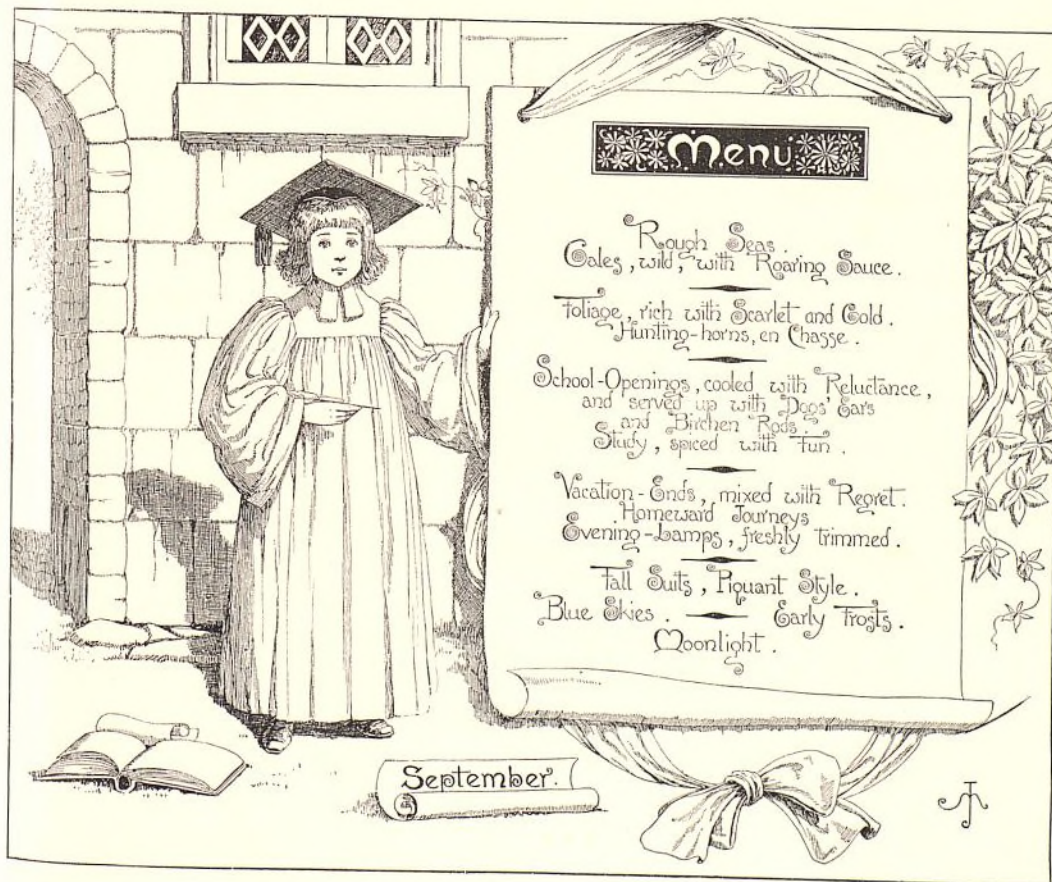 Menu
Rough Seas.
Gales, wild, with Roaring Sauce.
Foliage, rich with Scarlet and Gold.
Hunting-horns, en Chasse.
School-Openings, cooled with Reluctance,
and served up with Dogs' Ears
and Birchen Rods.
Study, spiced with Fun.
Vacation-Ends, mixed with Regret.
Homeward Journeys
Evening-Lamps, freshly trimmed.
Fall Suits, Piquant Style.
Blue Skies. Early Frosts.
Moonlight.
September.